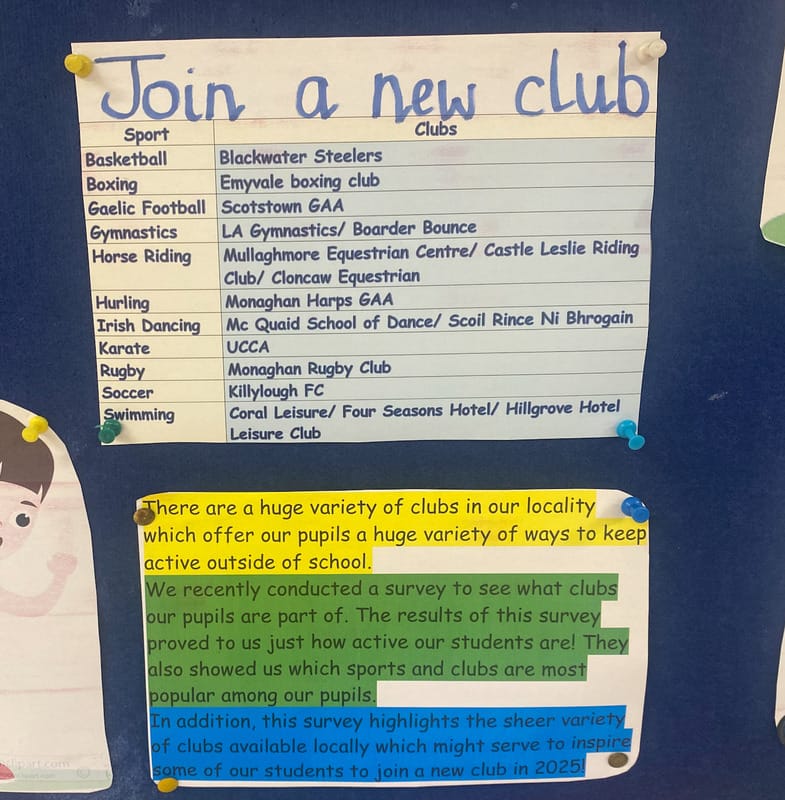 Join a new club
Sport Clubs
Basketball Blackwater Steelers
Boxing Emyvale boxing club
Gaelic Football Scotstown GAA
Gymnastics LA Gymnastics/ Boarder Bounce
Horse Riding Mullaghmore Equestrian Centre/ Castle Leslie Riding
Club/ Cloncaw Equestrian
Hurling Monaghan Harps GAA
Irish Dancing Mc Quaid School of Dance/ Scoil Rince Ni Bhrogain
Karate UCCA
Rugby Monaghan Rugby Club
Soccer Killylough FC
Swimming Coral Leisure/ Four Seasons Hotel/ Hillgrove Hotel
Leisure Club
There are a huge variety of clubs in our locality
which offer our pupils a huge variety of ways to keep
active outside of school.
We recently conducted a survey to see what clubs
our pupils are part of. The results of this survey
proved to us just how active our students are! They
also showed us which sports and clubs are most
popular among our pupils.
In addition, this survey highlights the sheer variety
of clubs available locally which might serve to inspire
some of our students to join a new club in 2025!